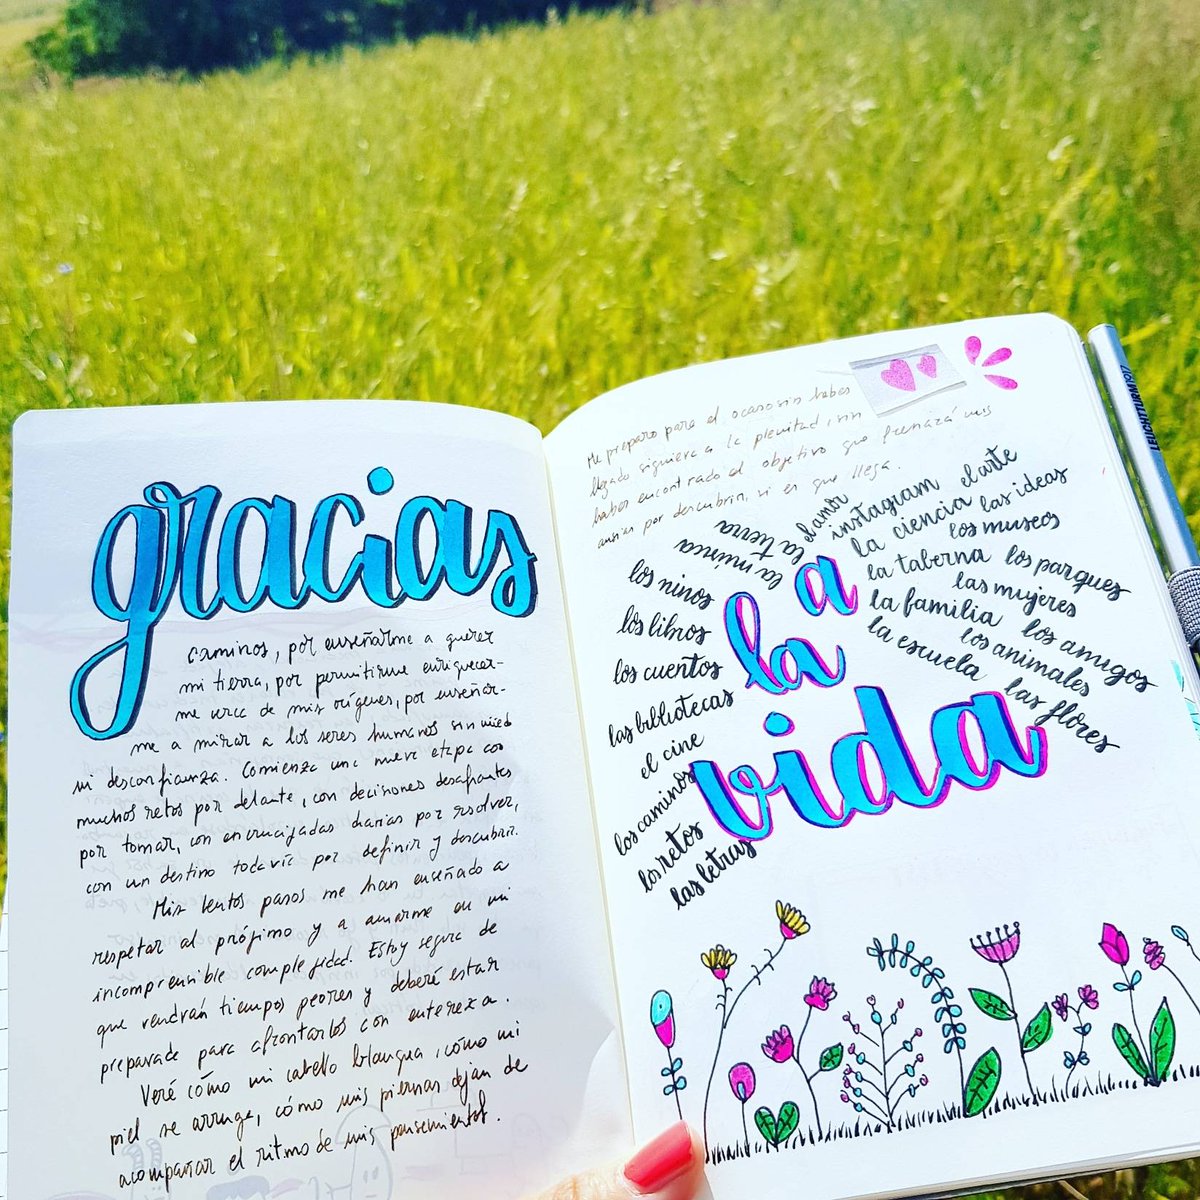 gracias
caminos, por enseñarme a querer
mi tierra, por permitirme enriquecer-
me cerca de mis orígenes, por enseñar-
me a mirar a los seres humanos sin miedo
ni desconfianza. Comienza una nueva etapa con
muchos retos por delante, con decisiones desafiantes
por tomar, con encrucijadas diarias por resolver,
con un destino todavía por definir y descubrir.
Mis lentos pasos me han enseñado a
respetar al prójimo y a amarme en mi
incomprensible complejidad. Estoy segura de
que vendrán tiempos peores y deberé estar
preparada para afrontarlos con entereza.
Veré cómo mi cabello blanquea, cómo mi
piel se arruga, cómo mis piernas dejan de
acompañar el ritmo de mis pensamientos.
Me preparo para el ocaso sin haber
llegado siquiera a la plenitud, sin
haber encontrado el objetivo que frenará mis
ansias por descubrir, si es que llega.
a
la
vida
las letras
los retos
los caminos
el cine
las bibliotecas
los cuentos
los libros
los niños
la música
la tierra
el amor
instagram
el arte
la ciencia
las ideas
los museos
la taberna
los parques
las mujeres
la familia
los amigos
los animales
la escuela
las flores
LEUCHTTURM1917